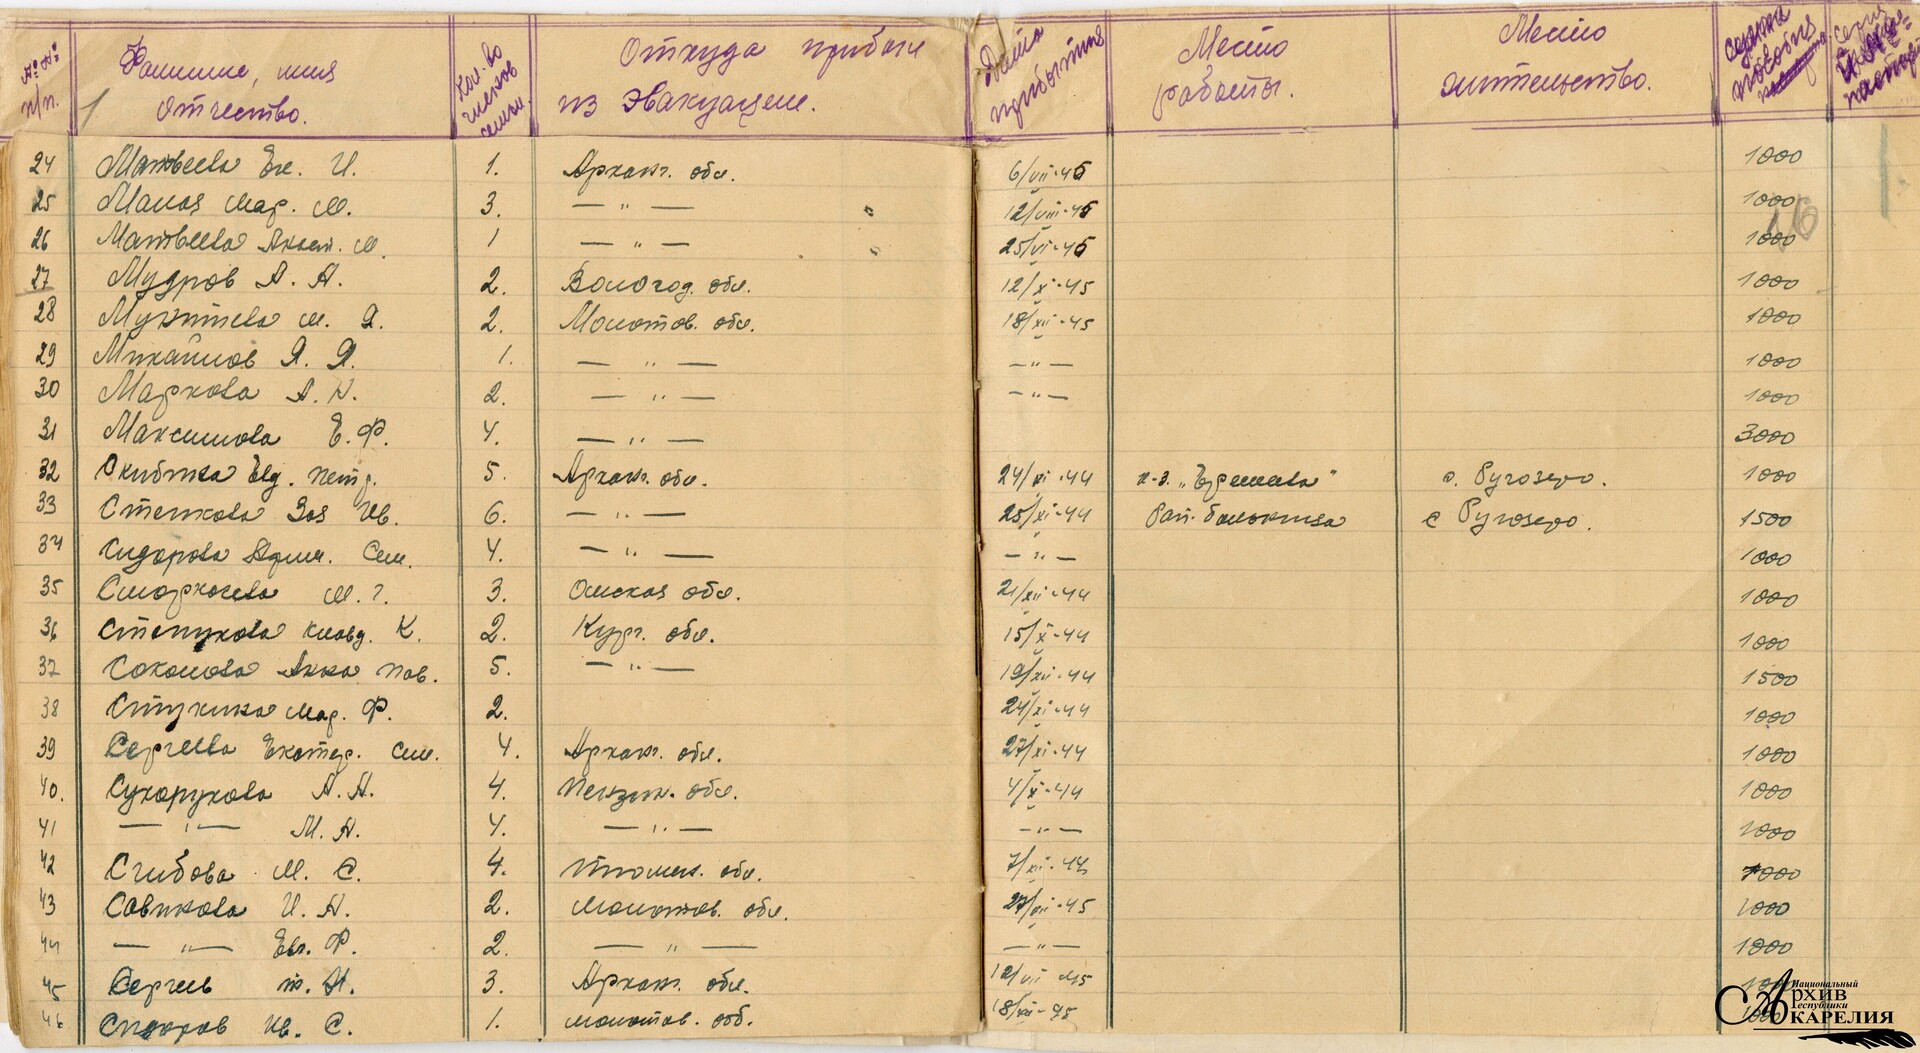 №№ п/п. Фамилие, имя отчество. Кол-во членов семьи. Откуда прибыл из эвакуации. Дата прибытия Место работы. Место жительство. сумма пособия
24 Матвеева Ек. И. 1. Арханг. обл. 6/VII-45 1000
25 Мар. М. 3. — " — 12/VIII-45 1000
26 Матвеева Анаст. М. 1 — " — 25/VI-45 1000
27 Мудров А. А. 2. Вологод. обл. 12/XI-45 1000
28 М. Я. 2. Молотов. обл. 18/XII-45 1000
29 Михайлов Я. Я. 1. — " — — " — 1000
30 Маркова А. Н. 2. — " — — " — 1000
31 Максимова Е. Ф. 4. — " — 3000
32 Евд. Петр. 5. Арханг. обл. 24/XI-44 к-з. с. Ругозеро. 1000
33 Степкова Зоя Ив. 6. — " — 25/XI-44 Рай. больница с Ругозеро. 1500
34 Сидорова Сем. 4. — " — — " — 1000
35 М. Г. 3. Омская обл. 21/XII-44 1000
36 Клавд. К. 2. Кург. обл. 15/X-44 1000
37 Соколова Анна Пав. 5. — " — 19/XII-44 1500
38 Мар. Ф. 2. 24/XI-44 1000
39 Сергеева Екатер. Сем. 4. Арханг. обл. 27/XI-44 1000
40. Сухорукова А. А. 4. Пензин. обл. 4/X-44 1000
41 — " — М. А. 4. — " — — " — 1000
42 М. С. 4. обл. 7/XI-44 1000
43 Савинова И. А. 2. Молотов. обл. 27/VII-45 1000
44 — " — Евг. Ф. 2. — " — — " — 1000
45 Сергеев А. 3. Арханг. обл. 12/VII-45
46 Сидоров Ив. С. 1. Молотов. об. 18/XII-45
Национальный
Архив
Республики
КАРЕЛИЯ